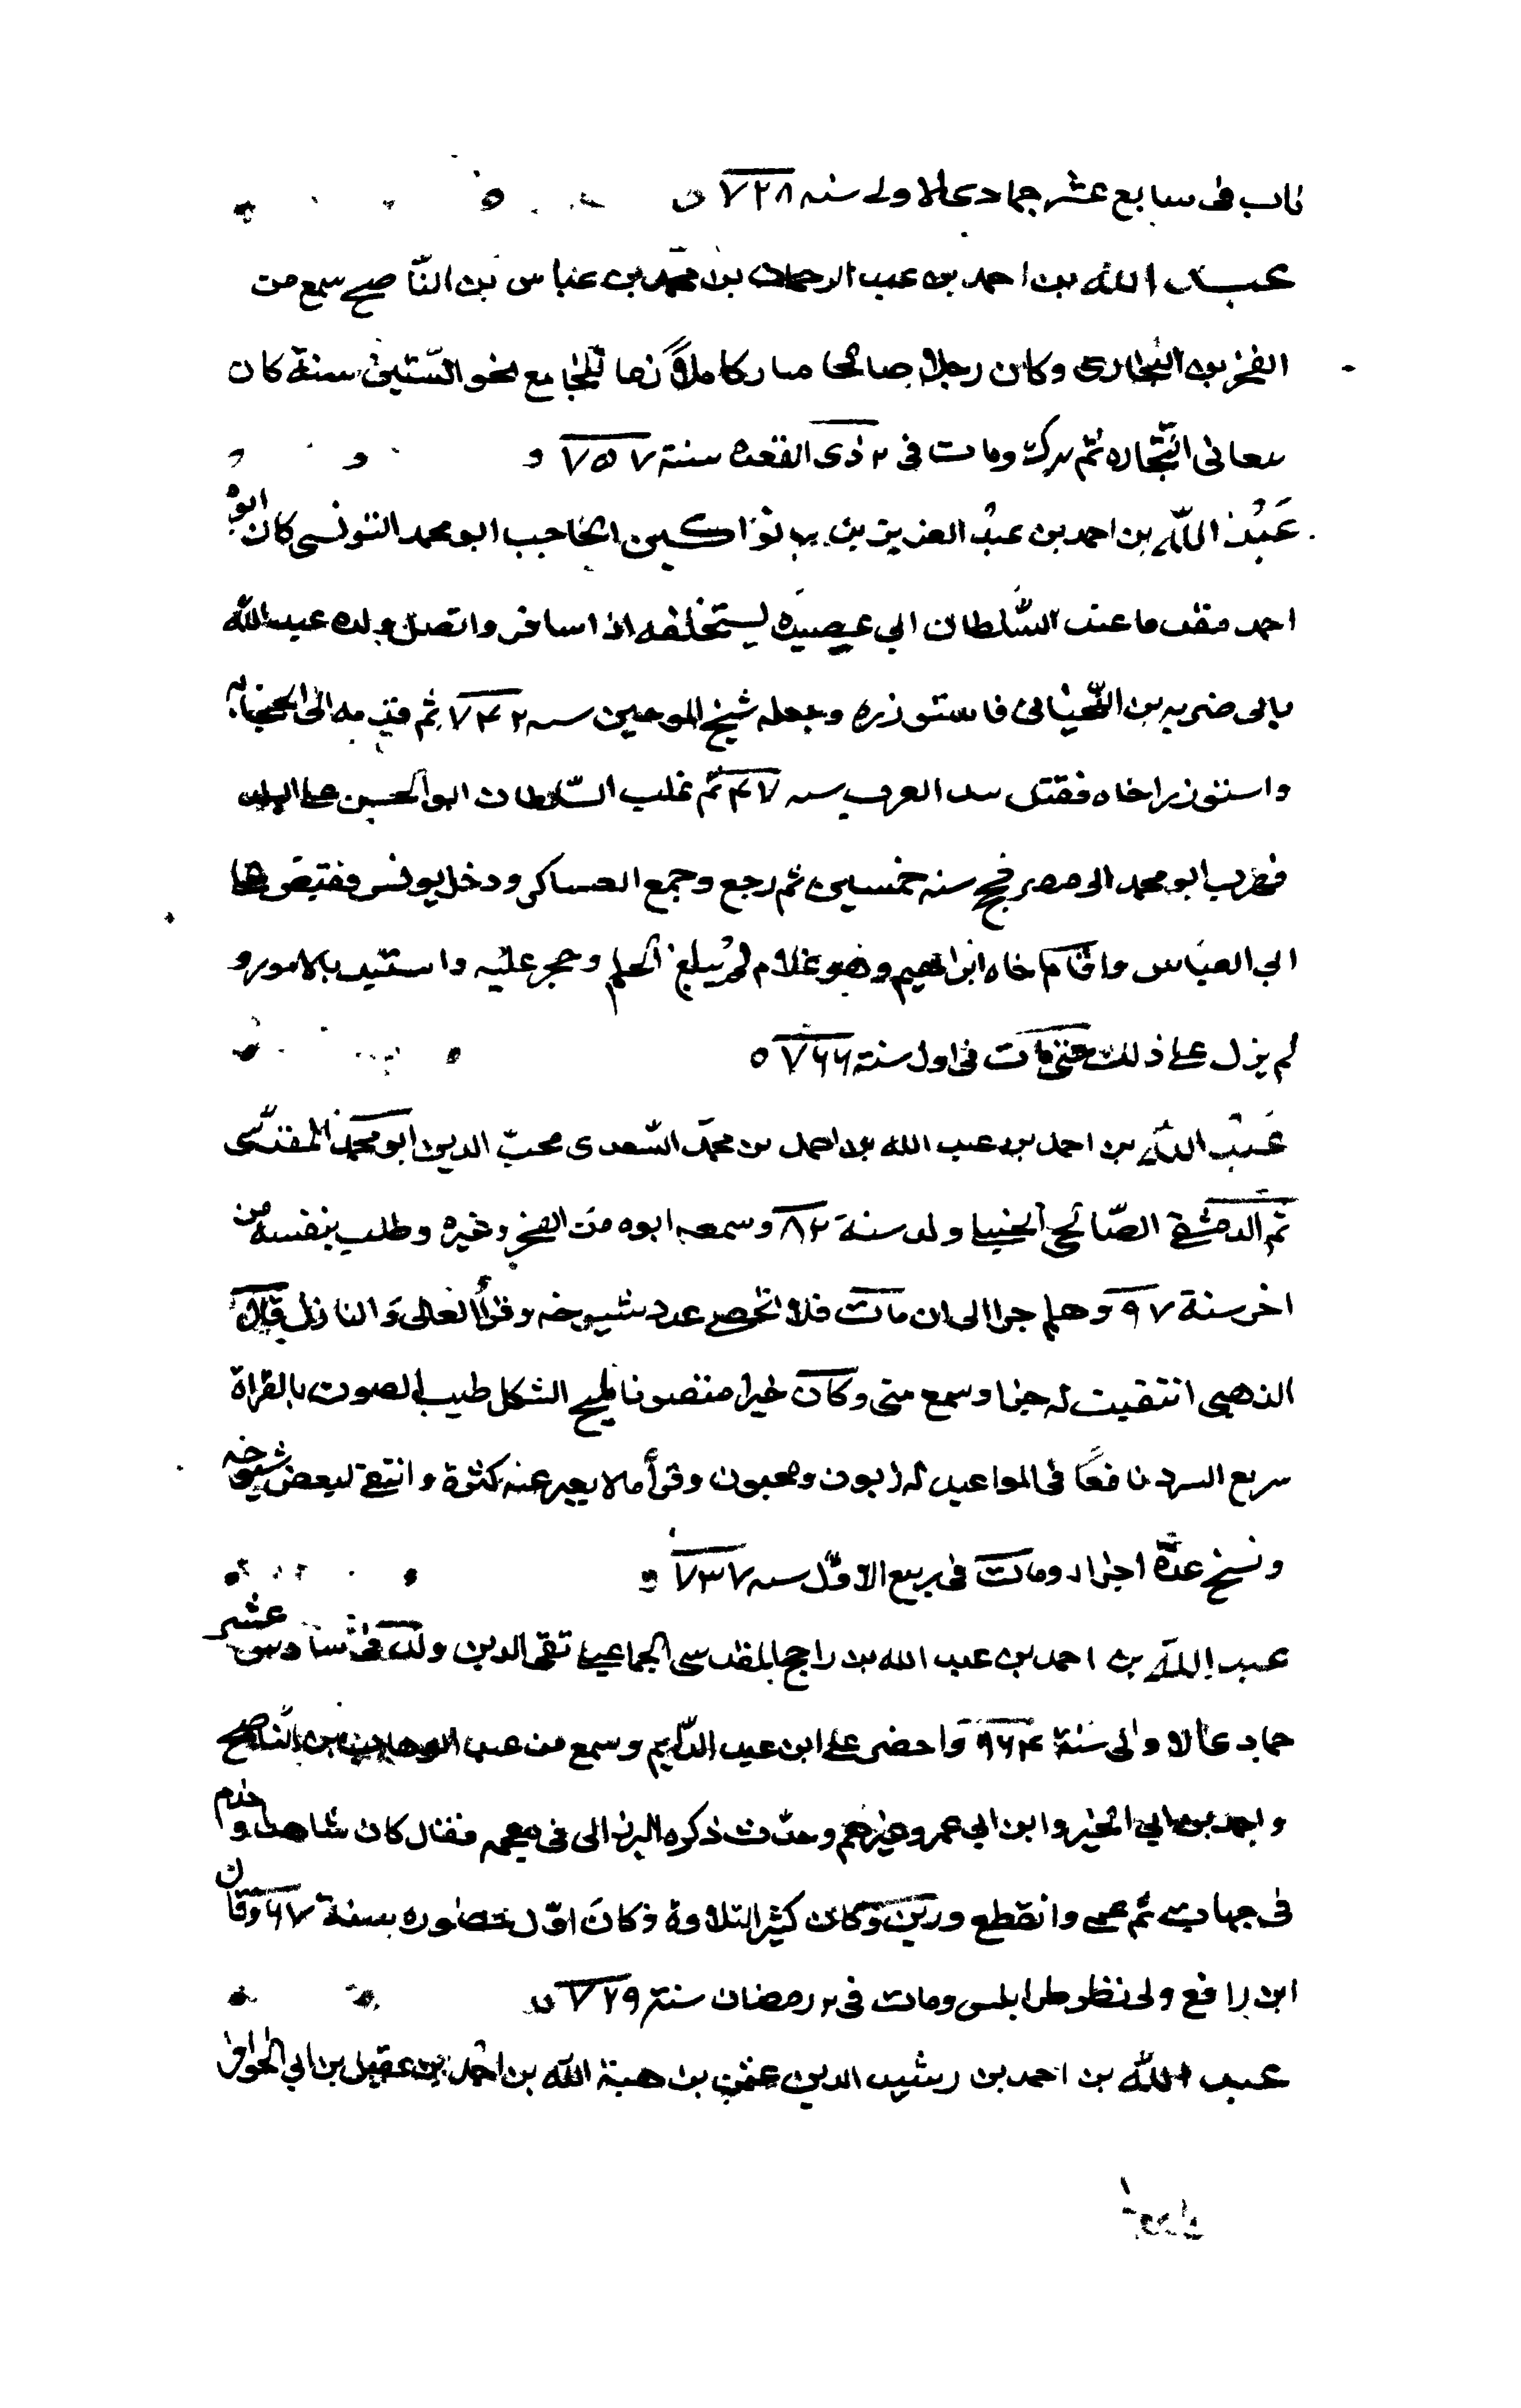 ناب فى سابع عشر جمادى الاولى سنه ٧٢٨
عبد الله بن احمد بن عبد الرحمن بن محمد بن عباس بن الناصح سمع من
الفخر بن البخارى وكان رجلا صالحا مباركا ملازما للجامع نحو الستين سنة كان
يعانى التجاره ثم ترك ومات فى ٢ ذى القعده سنة ٧٥٧
عبد الله بن احمد بن عبد العزيز بن الحاجب ابو محمد التونسى كان ابوه
احمد مقدما عند السلطان ابي عصيده يستخلفه اذا سافر واتصل ولده عبد الله
بابى ضربه بن اللحيانى فاستوزره وجعله شيخ الموحدين سنه ٧٤٢ ثم قدمه الى الحجابه
واستوزر اخاه فقتل العرب سنه ٤٧ ثم غلب السلطان ابو الحسن على البلد
فهرب ابو محمد الى مصر فحج سنه خمسين ثم رجع وجمع العساكر ودخل تونس وقبض على
ابي العباس واقام اخاه ابراهيم وهو غلام لم يبلغ الحلم وحجر عليه واستبد بالامور و
لم يزل على ذلك حتى مات فى اول سنة ٧٦٦
عبد الله بن احمد بن عبد الله بن احمد بن محمد السعدى محب الدين ابو محمد المقدسى
ثم الدمشقى الصالحى الحنبلى ولد سنة ٨٢ وسمعه ابوه من الفخر وغيره وطلب بنفسه من
اخر سنة ٩٧ وهلم جرا الى ان مات فلا تحصى عدد شيوخه وقرأ العالى والنازل قال
الذهبى انتقيت له جزا وسمع منى وكان خيرا متصونا مليح الشكل طيب الصوت بالقراة
سريع السرد نافعا فى المواعيد له زبون ومحبون وقرأ ما لا يعبر عنه كثرة وانتقى لبعض شيوخه
ونسخ عدة اجزاء ومات فى ربيع الاول سنه ٧٣٧
عبد الله بن احمد بن عبد الله بن راجح المقدسى الجماعيلى تقى الدين ولد فى سادس عشر
جمادى الاولى سنة ٦٦٤ واحضر على ابن عبد الدايم وسمع من عبد الوهاب بن الناصح
واحمد بن ابي الخير وابن ابي عمر وغيرهم وحدث ذكره البرزالى فى معجمه فقال كان شاهدا وخدم
فى جهات ثم عمى وانقطع وكان كثير التلاوة وكان اول حضوره سنة ٦٧ وقال
ابن رافع ولى نظر طرابلس ومات فى ٢ رمضان سنة ٧٢٩
عبد الله بن احمد بن رشيد الدين بن هبة الله بن احمد بن عقيل بن ابي الحوافر